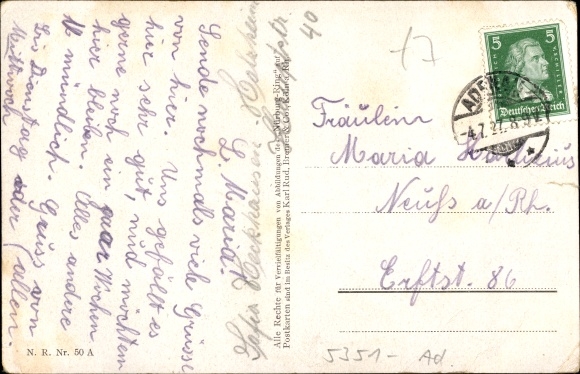 L. Maria!
Sende nochmals viele Grüsse
von hier. Uns gefällt es
hier sehr gut, und möchten
gerne noch ein paar Wochen
hier bleiben. Alles andere
mündlich. Gruss von
Bis Dienstag oder allen.
Mittwoch
Sofia
40
N. R. Nr. 50 A
Alle Rechte für Vervielfältigungen von Abbildungen des „Nürburg-Ring" auf
Postkarten sind im Besitz des Verlages Karl Rud. Bremer & Co., Köln a. Rh.
17
5 5
Deutsches Reich
ADEN
-4.7.27. 8
Fräulein
Maria
Neuß a/Rh.
Erftst. 86
5351- Ad.